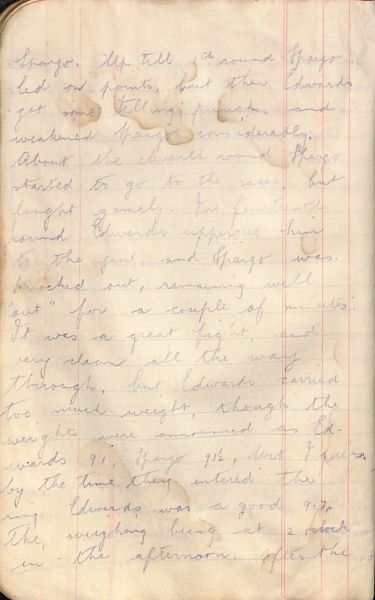 Spargo. Up till 8th round Spargo
led on points, but then Edwards
got some telling punches and
weakened Spargo considerably.
About the eleventh round Spargo
started to go to the , but
fought gamely. In fourteenth
round Edwards him
to the jaw, and Spargo was
knocked out, remaining well
"out" for a couple of minutes.
It was a great fight, and
very clean all the way
through, but Edwards carried
too much weight, though the
weights were announced as Ed-
wards 9.1, Spargo , but I
by the time they entered the
ring Edwards was a good 9.7,
the weighing being at 2 o'clock
in the afternoon. After the